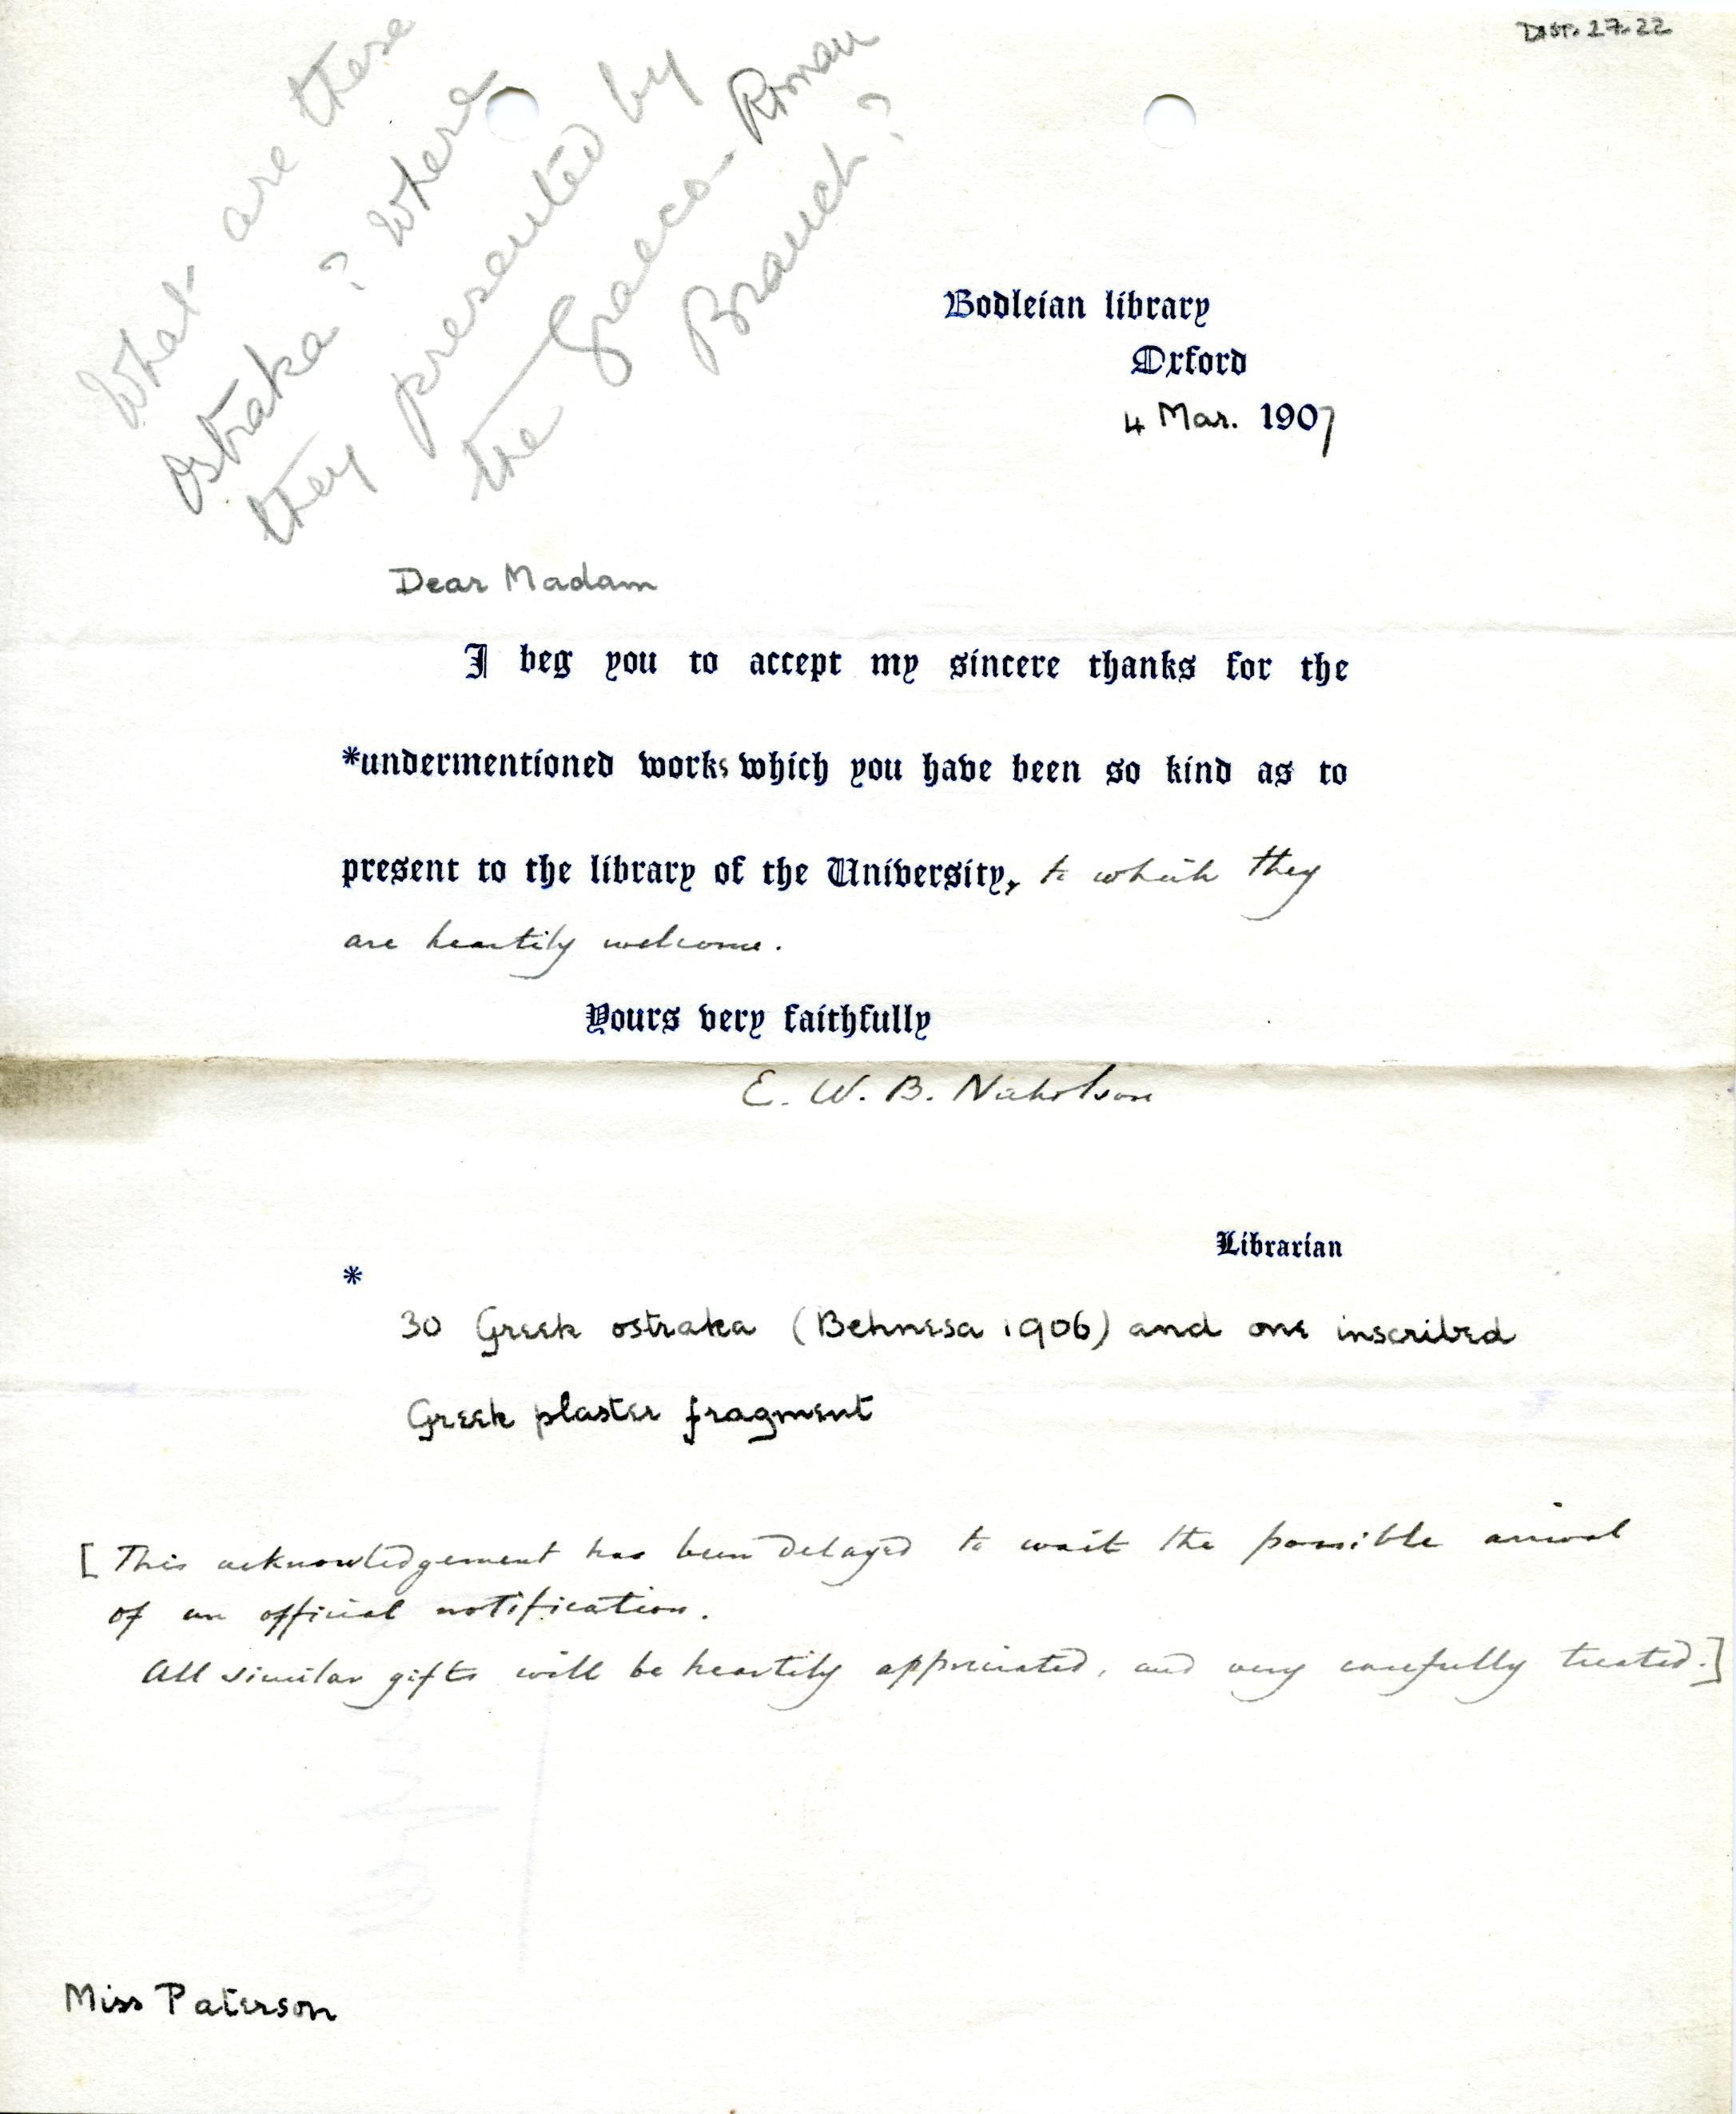 DIST. 27.22
What are these
ostraka? Where
they presented by
the Graeco-Roman
Branch?
Bodleian library
Oxford
4 Mar. 1907
Dear Madam
I beg you to accept my sincere thanks for the
*undermentioned works which you have been so kind as to
present to the library of the University, to which they
are heartily welcome.
Yours very faithfully
E. W. B. Nicholson
Librarian
*
30 Greek ostraka (Behnesa 1906) and one inscribed
Greek plaster fragment
[This acknowledgement has been delayed to wait the possible arrival
of an official notification.
All similar gifts will be heartily appreciated, and very carefully treated.]
Miss Paterson